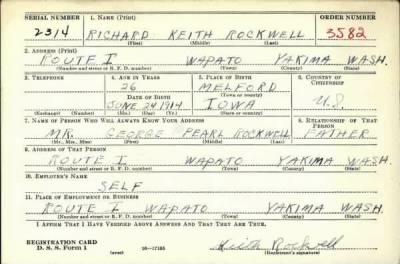 SERIAL NUMBER 1. NAME (Print) ORDER NUMBER
2314 RICHARD KEITH ROCKWELL 3582
(First) (Middle) (Last)
2. ADDRESS (Print)
ROUTE I WAPATO YAKIMA WASH.
(Number and street or R. F. D. number) (Town) (County) (State)
3. TELEPHONE 4. AGE IN YEARS 5. PLACE OF BIRTH 6. COUNTRY OF CITIZENSHIP
26 MELFORD
(Town or county)
DATE OF BIRTH
JUNE 24 1914 IOWA U.S.
(Exchange) (Number) (Mo.) (Day) (Yr.) (State or country)
7. NAME OF PERSON WHO WILL ALWAYS KNOW YOUR ADDRESS 8. RELATIONSHIP OF THAT PERSON
MR. GEORGE PEARL ROCKWELL FATHER
(Mr., Mrs., Miss) (First) (Middle) (Last)
9. ADDRESS OF THAT PERSON
ROUTE I WAPATO YAKIMA WASH.
(Number and street or R. F. D. number) (Town) (County) (State)
10. EMPLOYER'S NAME
SELF
11. PLACE OF EMPLOYMENT OR BUSINESS
ROUTE I WAPATO YAKIMA WASH.
(Number and street or R. F. D. number) (Town) (County) (State)
I AFFIRM THAT I HAVE VERIFIED ABOVE ANSWERS AND THAT THEY ARE TRUE.
REGISTRATION CARD
D. S. S. Form 1 (over) 16—17105 Keith Rockwell
(Registrant's signature)